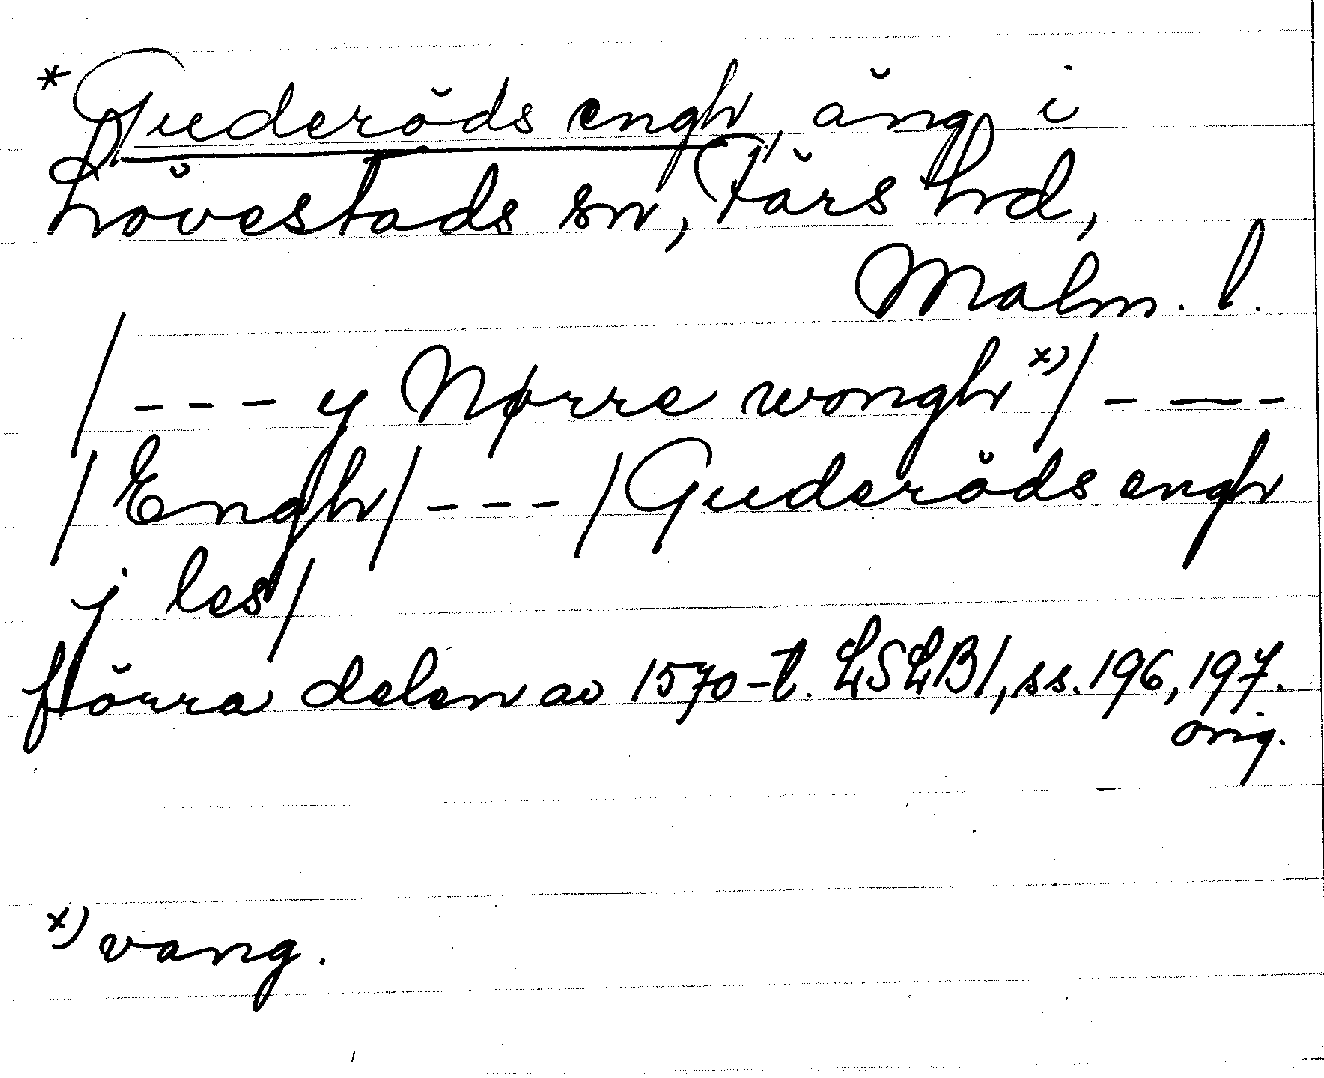 * Guderöds engh, äng i
Lövestads sn, Färs hd,
Malm. l.
/ - - - y Nørre wongh x) / - - -
/ Engh / - - - / Guderöds engh
j les /
förra delen av 1570-t. LSLB 1, ss. 196, 197.
orig.
x) vang.